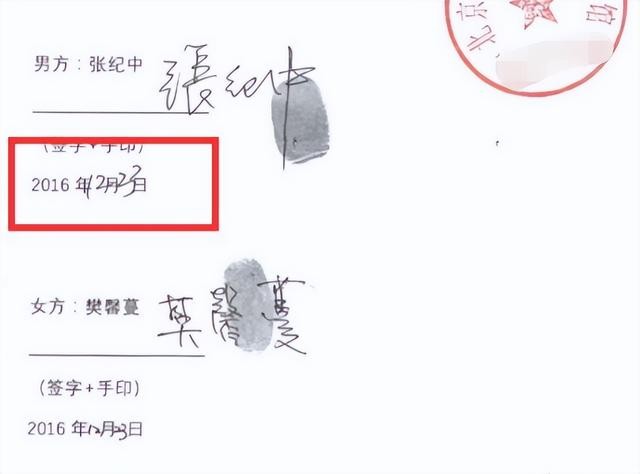 北京 馆
男方：张纪中 張纪中
（签字+手印）
2016 年12月23日
女方：樊馨蔓 樊馨蔓
（签字+手印）
2016 年12月23日